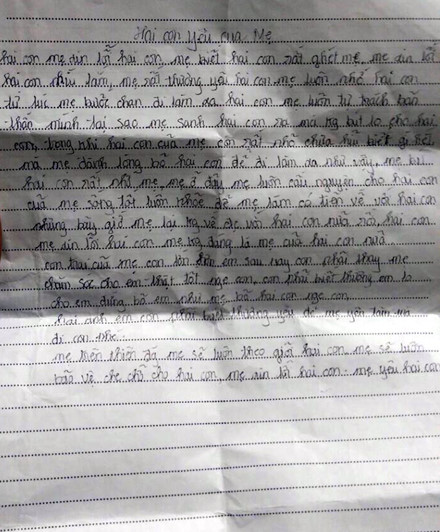 Hai con yêu của Mẹ
hai con mẹ xin lỗi hai con, mẹ biết hai con rất ghét mẹ, mẹ xin lỗi
hai con nhiều lắm, mẹ rất thương yêu hai con mẹ luôn nhớ hai con
từ lúc mẹ bước chân đi làm xa hai con mẹ luôn tự trách bản
thân mình tại sao mẹ sanh hai con ra mà kg lo cho hai
con, trong khi hai con của mẹ còn rất nhỏ chưa hiểu biết gì hết
mà mẹ đành lòng bỏ hai con để đi làm xa như vậy, mẹ
hai con rất nhớ mẹ, mẹ ở đây mẹ luôn cầu nguyện cho hai con
của mẹ sống tốt luôn khoẻ để mẹ làm có tiền về với hai con
nhưng bây giờ mẹ lại kg về đc với hai con nữa rồi, hai con
mẹ xin lỗi hai con mẹ kg đáng là mẹ của hai con nữa
con trai của mẹ con lớn hơn em sau này con phải thay mẹ
chăm sóc cho em thật tốt nge con, con phải biết thương em lo
cho em đừng bỏ em như mẹ bỏ hai con nge con
Hai anh em con phải biết thương yêu để mẹ yên tâm mà
đi con nhé.
mẹ trên thiên đà, mẹ sẽ luôn theo giỏi hai con, mẹ sẽ luôn
bảo vệ che chở cho hai con, mẹ xin lỗi hai con. mẹ yêu hai con